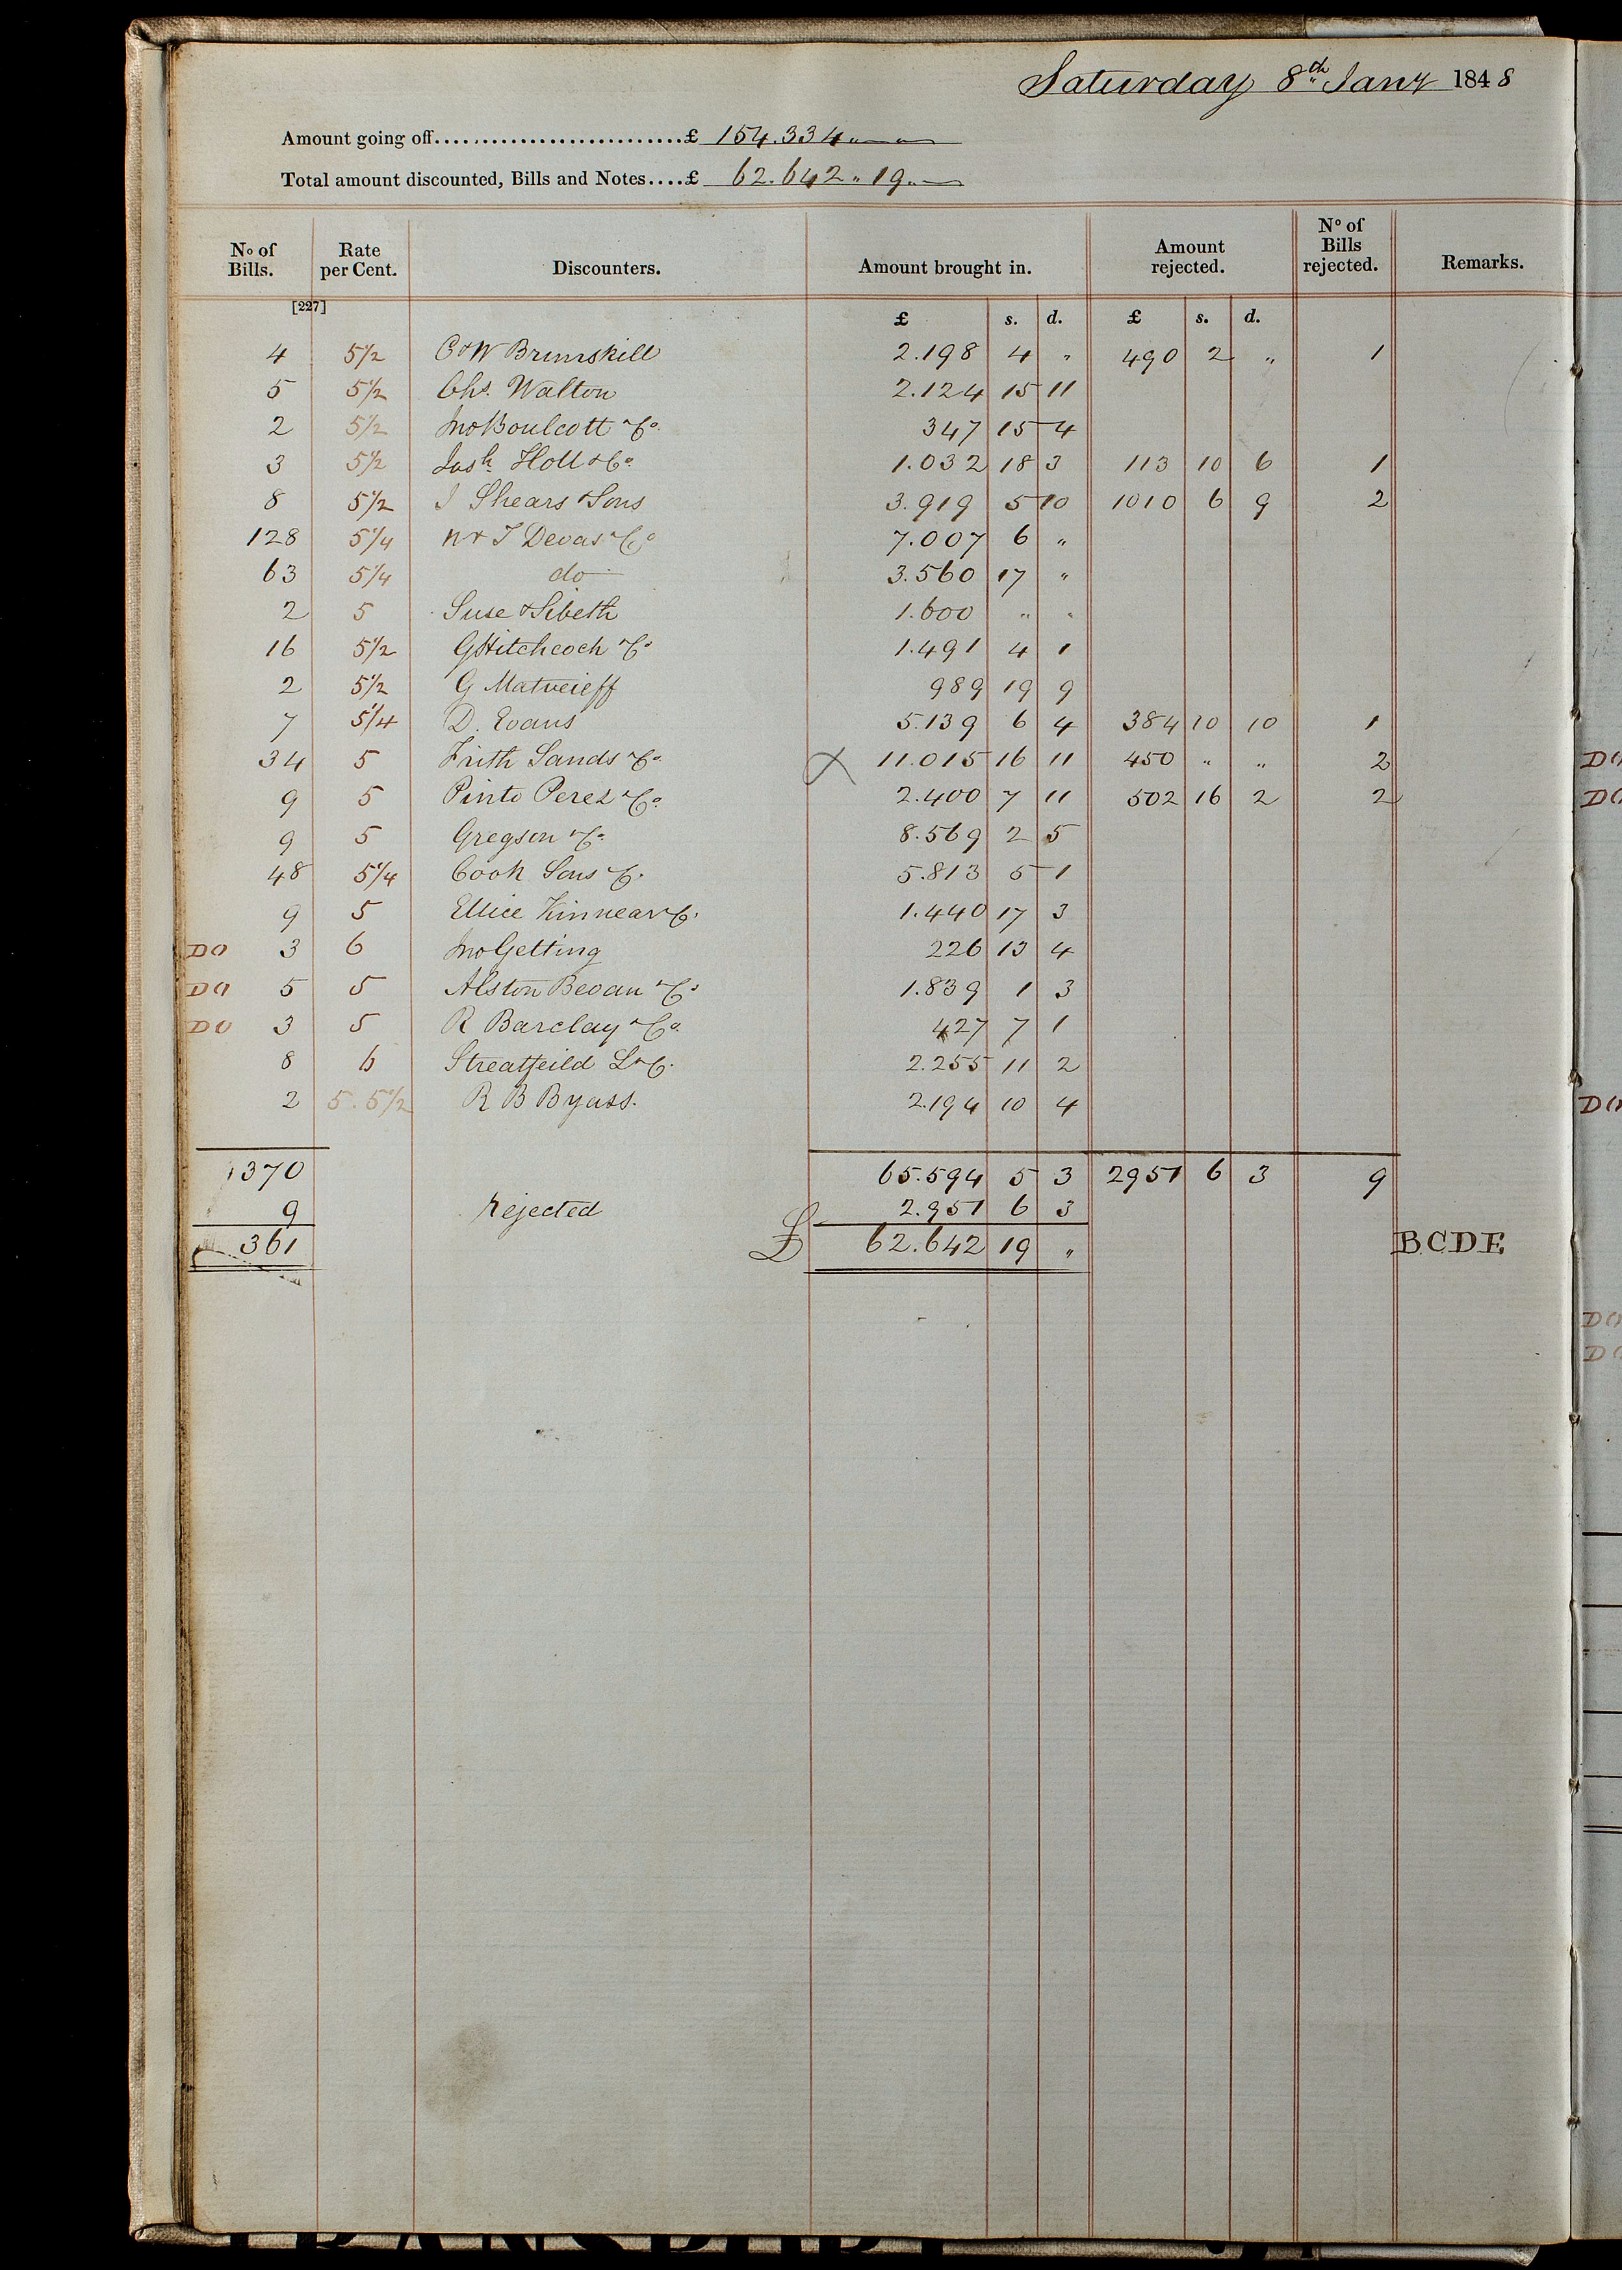 Saturday 8th Jany 1848
Amount going off..........................£ 154.334 " — "
Total amount discounted, Bills and Notes....£ 62.642 " 19 " —
No of Bills. Rate per Cent. Discounters. Amount brought in. Amount rejected. No of Bills rejected. Remarks.
[227]
£ s. d. £ s. d.
4 5½ C & W Brunskill 2.198 4 " 490 2 " 1
5 5½ Chs. Walton 2.124 15 11
2 5½ Jno Boulcott & Co. 347 15 4
3 5½ Josh Holl & Co. 1.032 18 3 113 10 6 1
8 5½ J Shears & Sons 3.919 5 10 1010 6 9 2
128 5¼ W & T Devas & Co 7.007 6 "
63 5¼ do 3.560 17 "
2 5 Suse & Sibeth 1.600 " "
16 5½ G Hitchcock & Co 1.491 4 1
2 5½ G Matveieff 989 19 9
7 5¼ D. Evans 5.139 6 4 384 10 10 1
34 5 Frith Sands & Co. X 11.015 16 11 450 " " 2
9 5 Pinto Perez & Co. 2.400 7 11 502 16 2 2
9 5 Gregson & Co 8.569 2 5
48 5¼ Cook Sons & C. 5.813 5 1
9 5 Ellice Kinnear & C. 1.440 17 3
DO 3 6 Jno Getting 226 13 4
DO 5 5 Alston Bevan & Co 1.839 1 3
DO 3 5 R Barclay & Co. 427 7 1
8 6 Streatfeild L & C. 2.255 11 2
2 5. 5½ R B Byass. 2.194 10 4
370 65.594 5 3 2951 6 3 9
9 rejected 2.951 6 3
361 £ 62.642 19 " B C D E